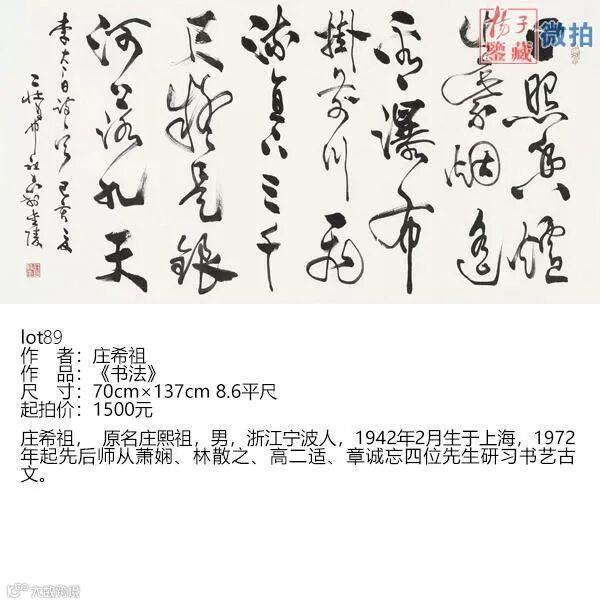 日照香爐
生紫烟遙
看瀑布
掛前川飛
流直下三千
尺疑是銀
河落九天
李太白詩一首 己亥夏
揚子
鑒藏
微拍
lot89
作 者：庄希祖
作 品：《书法》
尺 寸：70cm×137cm 8.6平尺
起拍价：1500元
庄希祖， 原名庄熙祖，男，浙江宁波人，1942年2月生于上海，1972
年起先后师从萧娴、林散之、高二适、章诚忘四位先生研习书艺古
文。
大数跨境